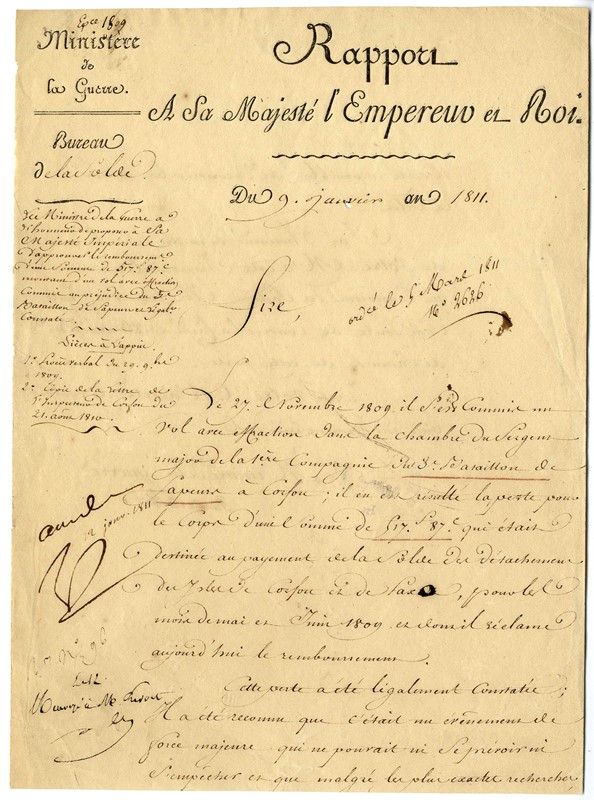 Ex.ce 1809
Ministère
de
la Guerre.
Bureau
de la Solde.
Rapport
A Sa Majesté l'Empereur et Roi.
Du 9. Janvier an 1811.
Le Ministre de la Guerre a
l'honneur de proposer à Sa
Majesté Impériale
d'approuver le remboursem.t
d'une Somme de 517.f 87.c
provenant d'un vol avec effraction
Commis au préjudice du 3.e
Bataillon de Sapeurs et légalem.t
Constaté.
Pièces à l'appui.
1.o Procès verbal du 29. 9.bre
1809.
2.o Copie de la lettre de
l'Inspecteur de Corfou du
21. août 1810.
Sire,
ordcé le 5 Mars 1811
N.o 2626
Le 27. Novembre 1809 il s'est Commis un
vol avec effraction dans la chambre du Sergent
major de la 1.ère Compagnie du 3.e Bataillon de
Sapeurs à Corfou; il en est résulté la perte pour
le Corps d'une Somme de 517.f 87.c qui était
destinée au payement de la Solde des détachemens
des Isles de Corfou et de Paxo, pour les
mois de mai et Juin 1809 et dont il réclame
aujourd'hui le remboursement.
Cette perte a été légalement Constatée;
Il a été reconnu que c'était un événement de
force majeure qui ne pourrait ni se prévoir ni
s'empêcher et que malgré les plus exactes recherches,
janv. 1811
N.o 96
Renvoyé à M.